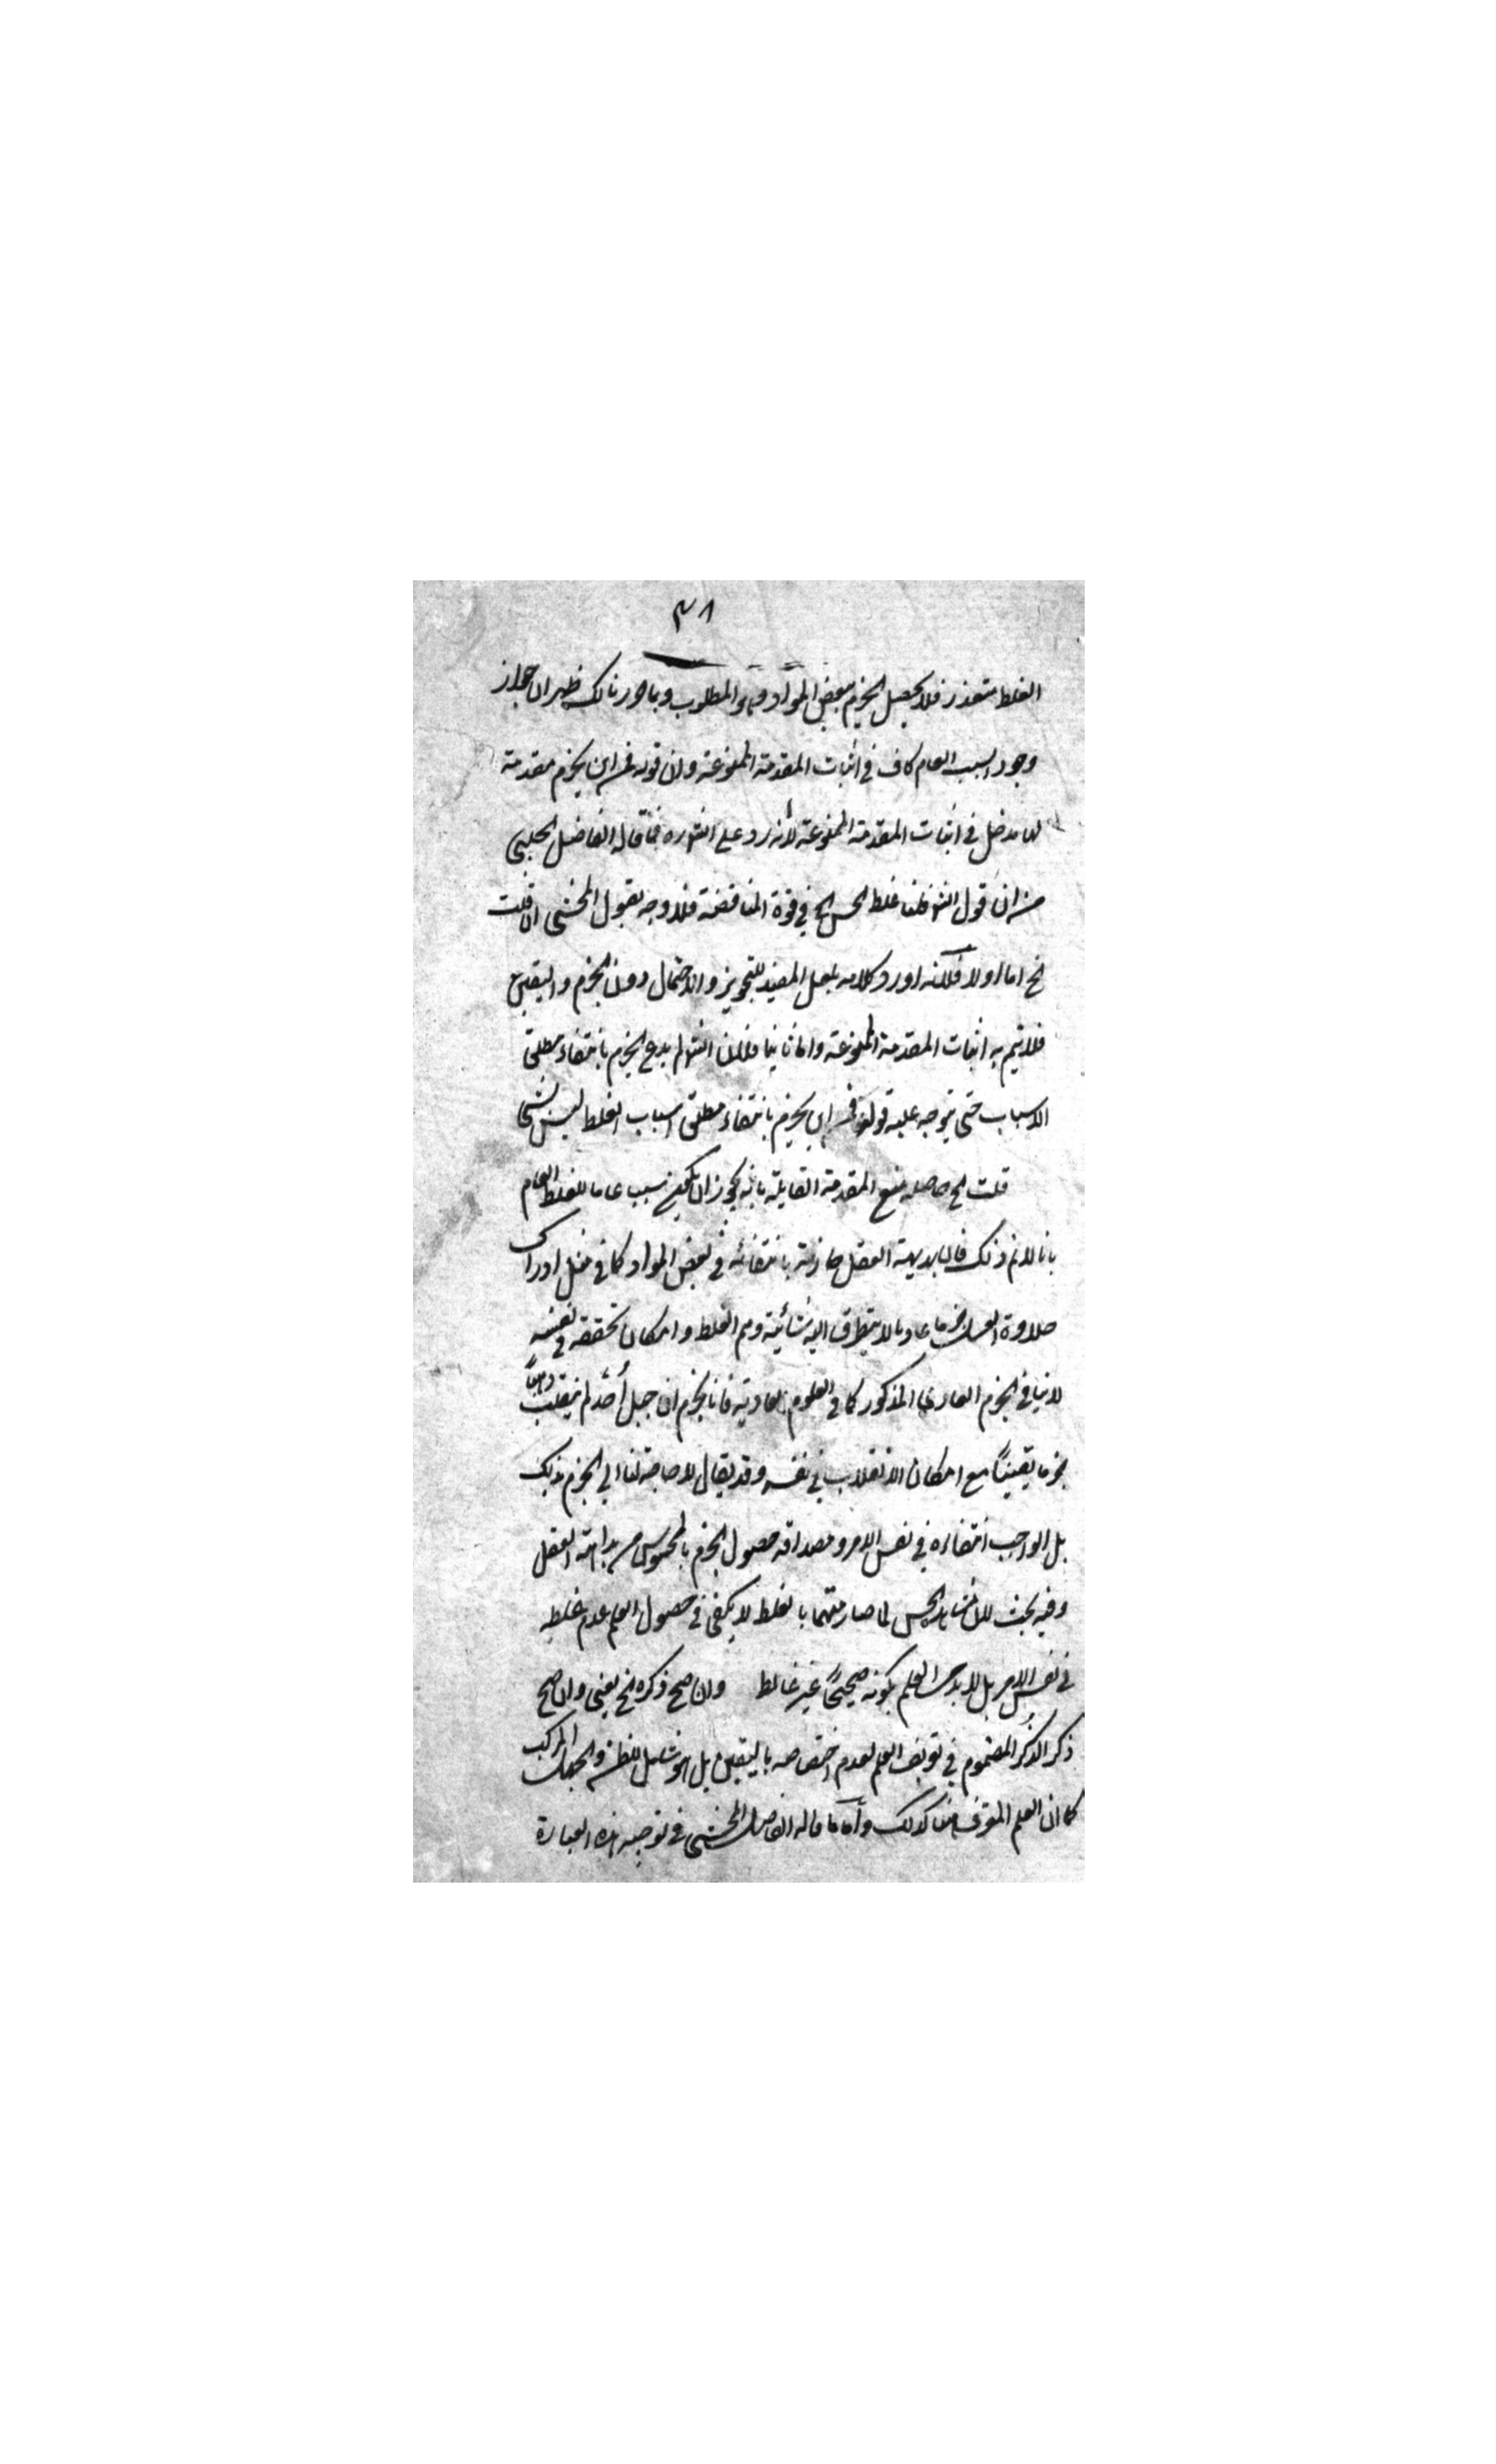 ٣٨
الغلط متعذر فلا يحصل الجزم ببعض المواد وهو المطلوب وبما حررنا لك ظهر ان جواز
وجود السبب العام كاف في اثبات المقدمة الممنوعة وان قوله فمن اين يجزم مقدمة
لها مدخل في اثبات المقدمة الممنوعة لانه رد على الشارح فما قاله الفاضل الجلبي
من ان قول الش قلنا غلط الحس الخ في قوة المناقضة فلا وجه لقول المحشي ان قلت
الخ اما اولا فلانه اورد كلامه بلعل المفيد للتجويز والاحتمال دون الجزم واليقين
فلا يتم به اثبات المقدمة الممنوعة واما ثانيا فلان الش لم يدع الجزم بانتفاء مطلق
الاسباب حتى يتوجه عليه قوله فمن اين يجزم بانتفاء مطلق اسباب الغلط ليس بشئ
قلت الخ حاصله منع المقدمة القايلة بانه يجوز ان يكون سبب عاما للغلط العام
بانا لانم ذلك فان بديهة العقل جازمة بانتفائه في بعض المواد كما في مثل ادراك
حلاوة العسل جزما عاديا لا يتطرق اليه شائبة وهم الغلط وامكان تحققه في نفسه
لا ينافي الجزم العادي المذكور كما في العلوم العادية فانا نجزم ان جبل أحد لم ينقلب ذهباً
جزما يقينيًا مع امكان الانقلاب في نفسه وقد يقال لا حاجة لنا الي الجزم بذلك
بل الواجب انتفاءه في نفس الامر ومصداقه حصول الجزم بالمحسوس من بداهة العقل
وفيه بحث لان شاهد الحس لما صار متهما بالغلط لا يكفي في حصول العلم عدم غلطه
في نفس الامر بل لا بد من العلم بكونه صحيحًا غير غالط وان صح ذكره الخ يعني وان صح
ذكر الذُكر المضموم في تعريف العلم لعدم اختصاصه باليقين بل هو شامل للظن والجهل المركب
كما ان العلم المعرف هنا كذلك وأما ما قاله الفاضل المحشي في توجيه هذه العبارة